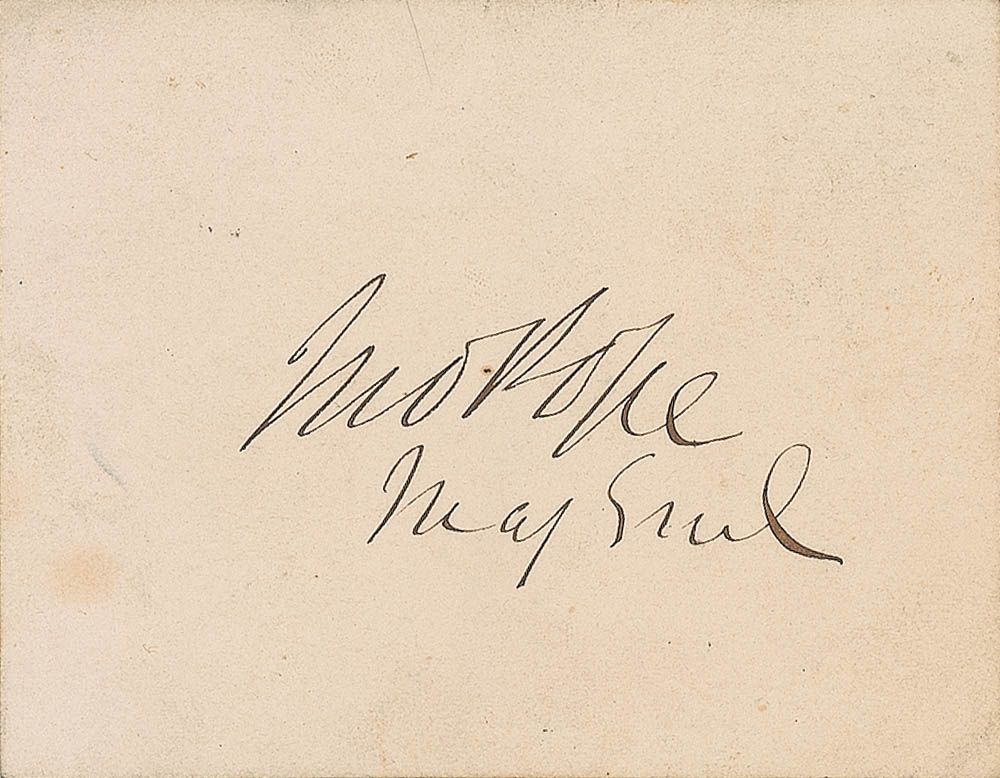 Jno Pope
Maj Genl